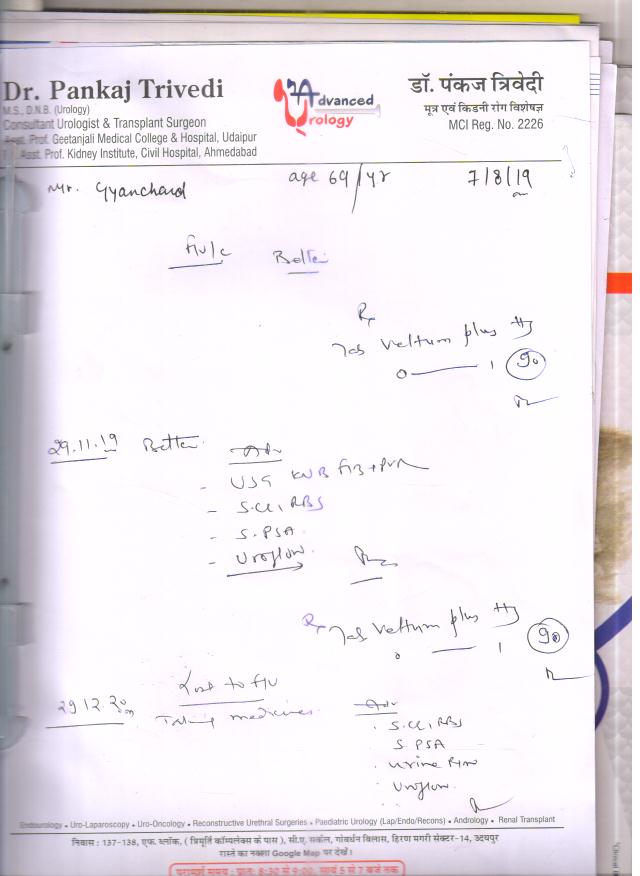 Dr. Pankaj Trivedi
M.S., D.N.B. (Urology)
Consultant Urologist & Transplant Surgeon
Asst. Prof. Geetanjali Medical College & Hospital, Udaipur
Asst. Prof. Kidney Institute, Civil Hospital, Ahmedabad
Advanced
Urology
डॉ. पंकज त्रिवेदी
मूत्र एवं किडनी रोग विशेषज्ञ
MCI Reg. No. 2226
Mr. Gyanchand age 69/yr 7/8/19
F/U/C Better
Rx
Tab Veltum plus
0 — 1 90
29.11.19 Better Adv
- USG KUB + PVR
- S.Cr, RBS
- S.PSA
- Uroflow
Rx Tab Veltum plus
0 — 1 90
29.12.20 Lost to F/U
Taking medicines
Adv
. S.Cr, RBS
S PSA
. Urine R/M
. Uroflow
Endourology • Uro-Laparoscopy • Uro-Oncology • Reconstructive Urethral Surgeries • Paediatric Urology (Lap/Endo/Recons) • Andrology • Renal Transplant
निवास : 137-138, एफ. ब्लॉक, ( त्रिमूर्ति कॉम्पलेक्स के पास ), सी.ए. सर्कल, गोवर्धन विलास, हिरण मगरी सेक्टर-14, उदयपुर
रास्ते का नक्शा Google Map पर देखें।
परामर्श समय : प्रातः 8:30 से 9:00, सायं 5 से 7 बजे तक